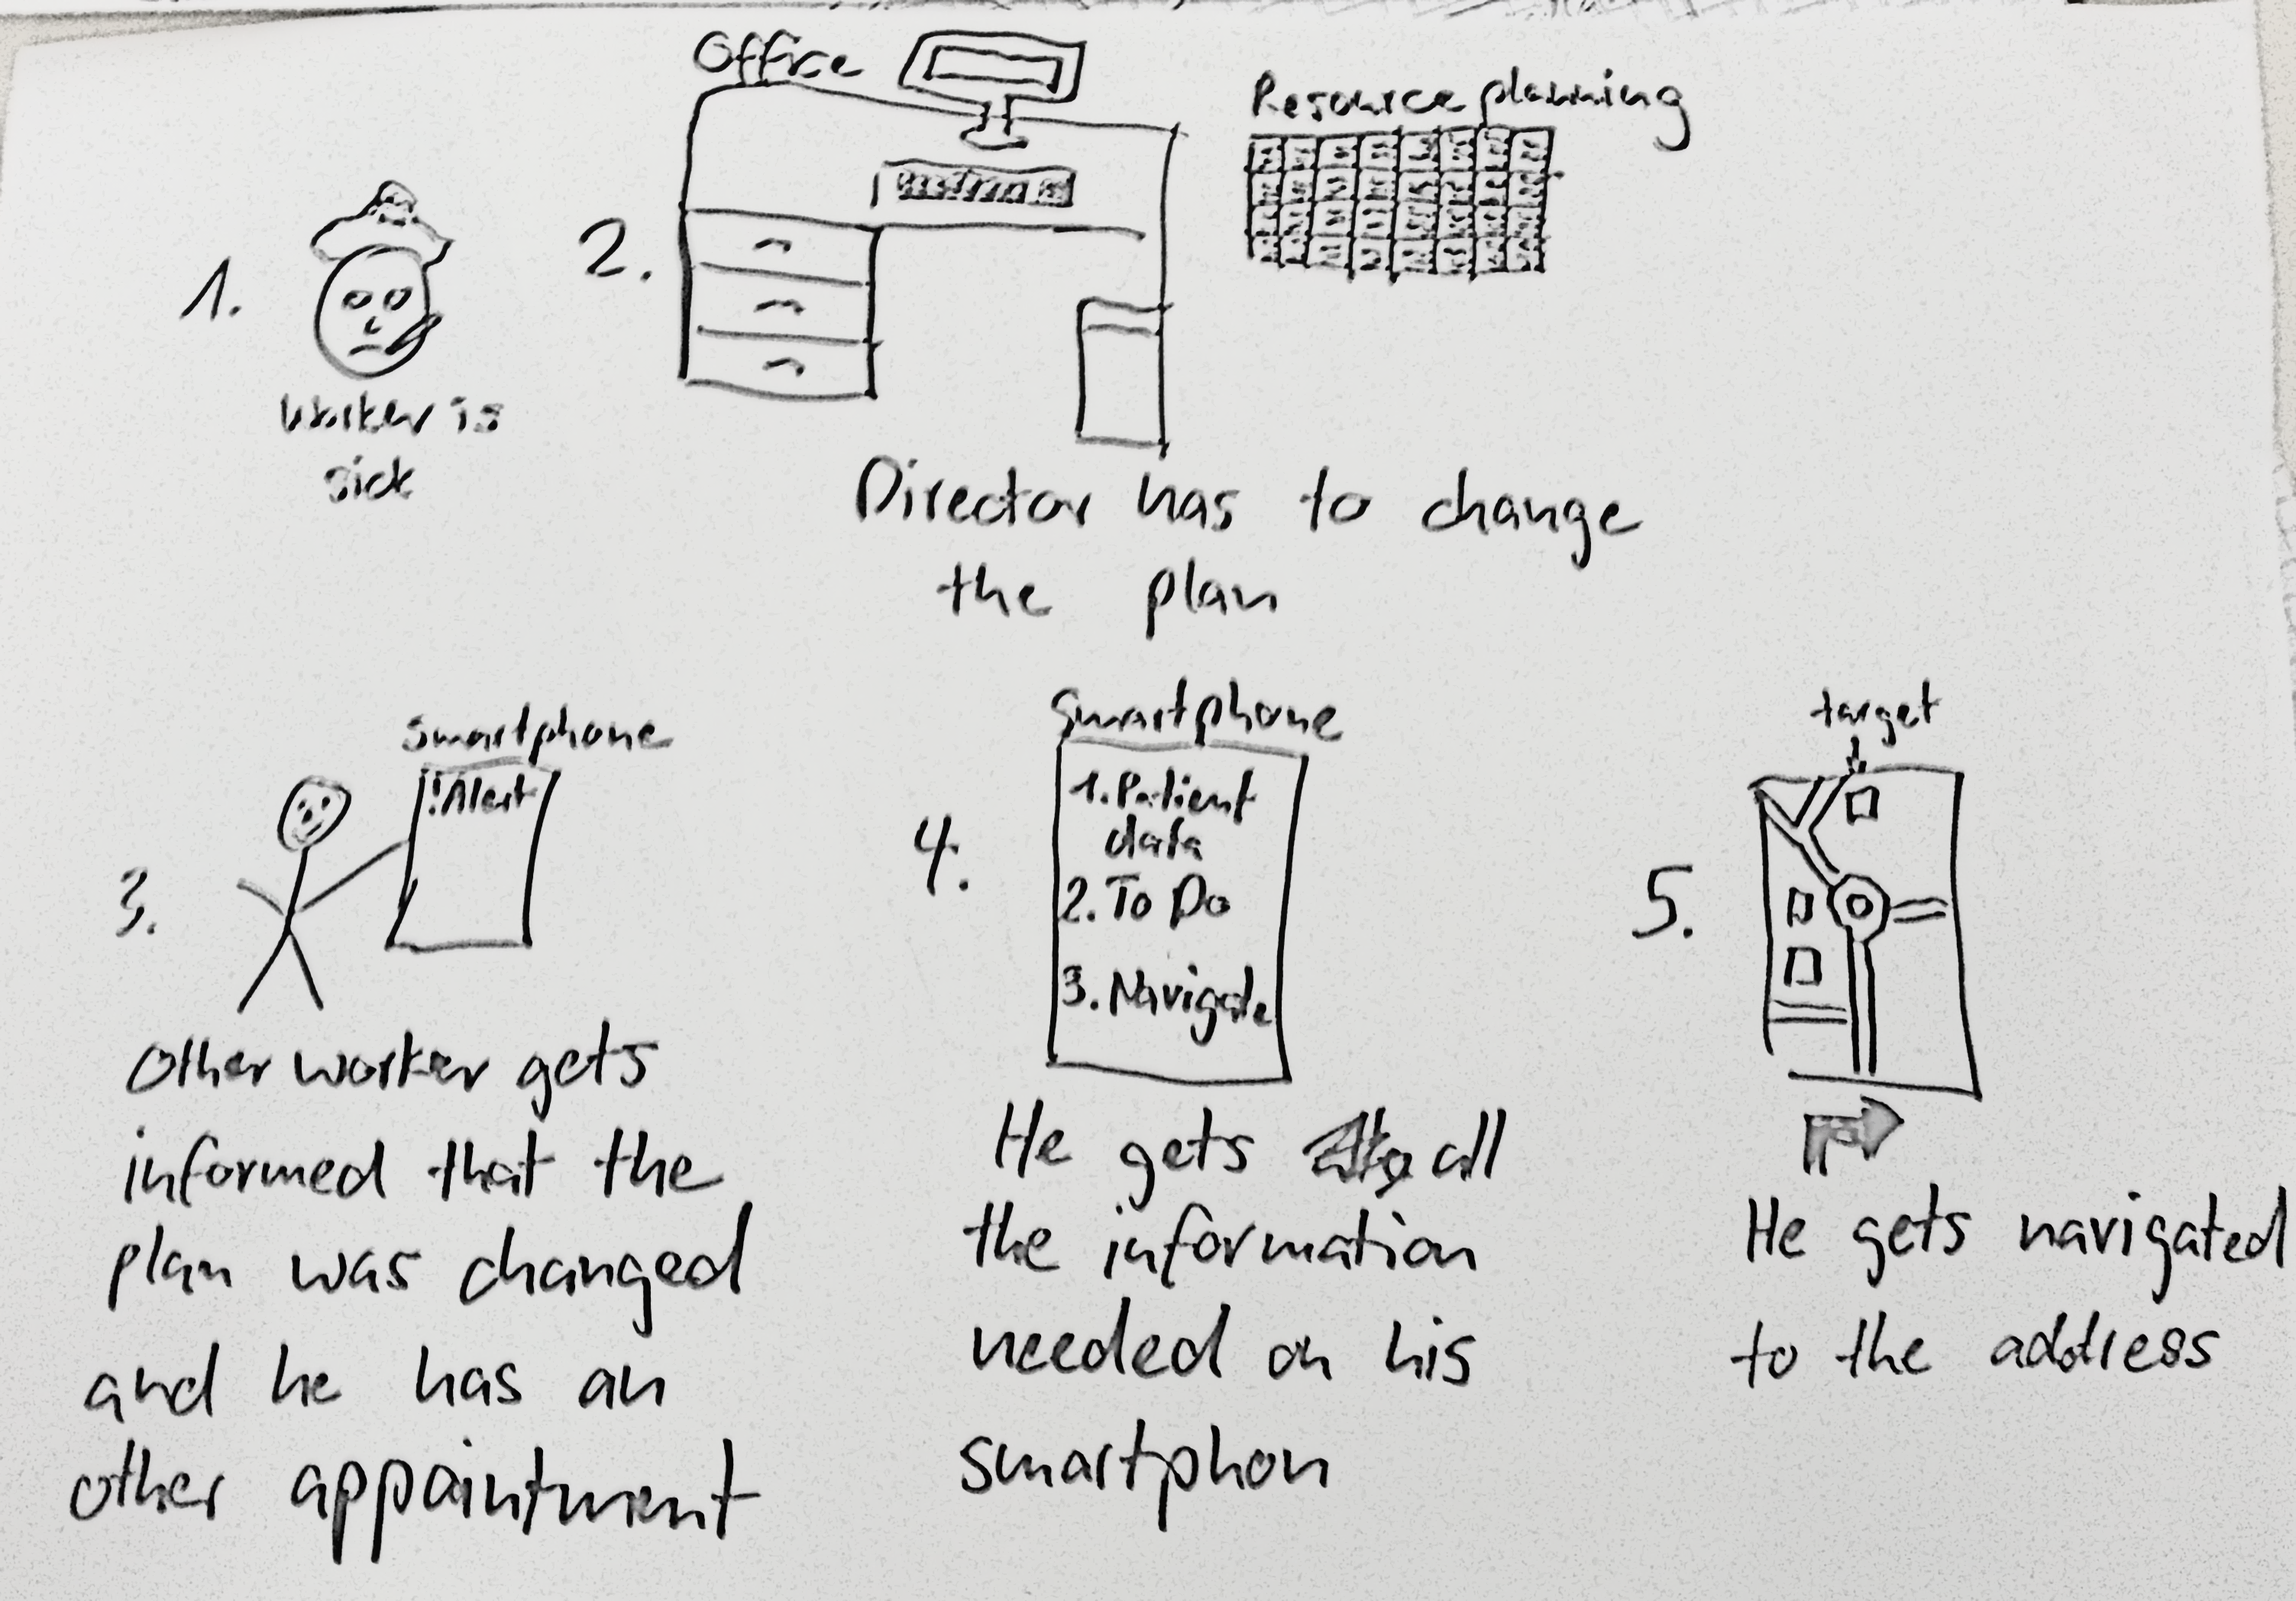 Office
Resource planning
1.
2.
Worker is
sick
Director has to change
the plan
3.
smartphone
!Alert
Other worker gets
informed that the
plan was changed
and he has an
other appointment
4.
Smartphone
1. Patient
data
2. To Do
3. Navigate
He gets all
the information
needed on his
smartphon
5.
target
He gets navigated
to the address